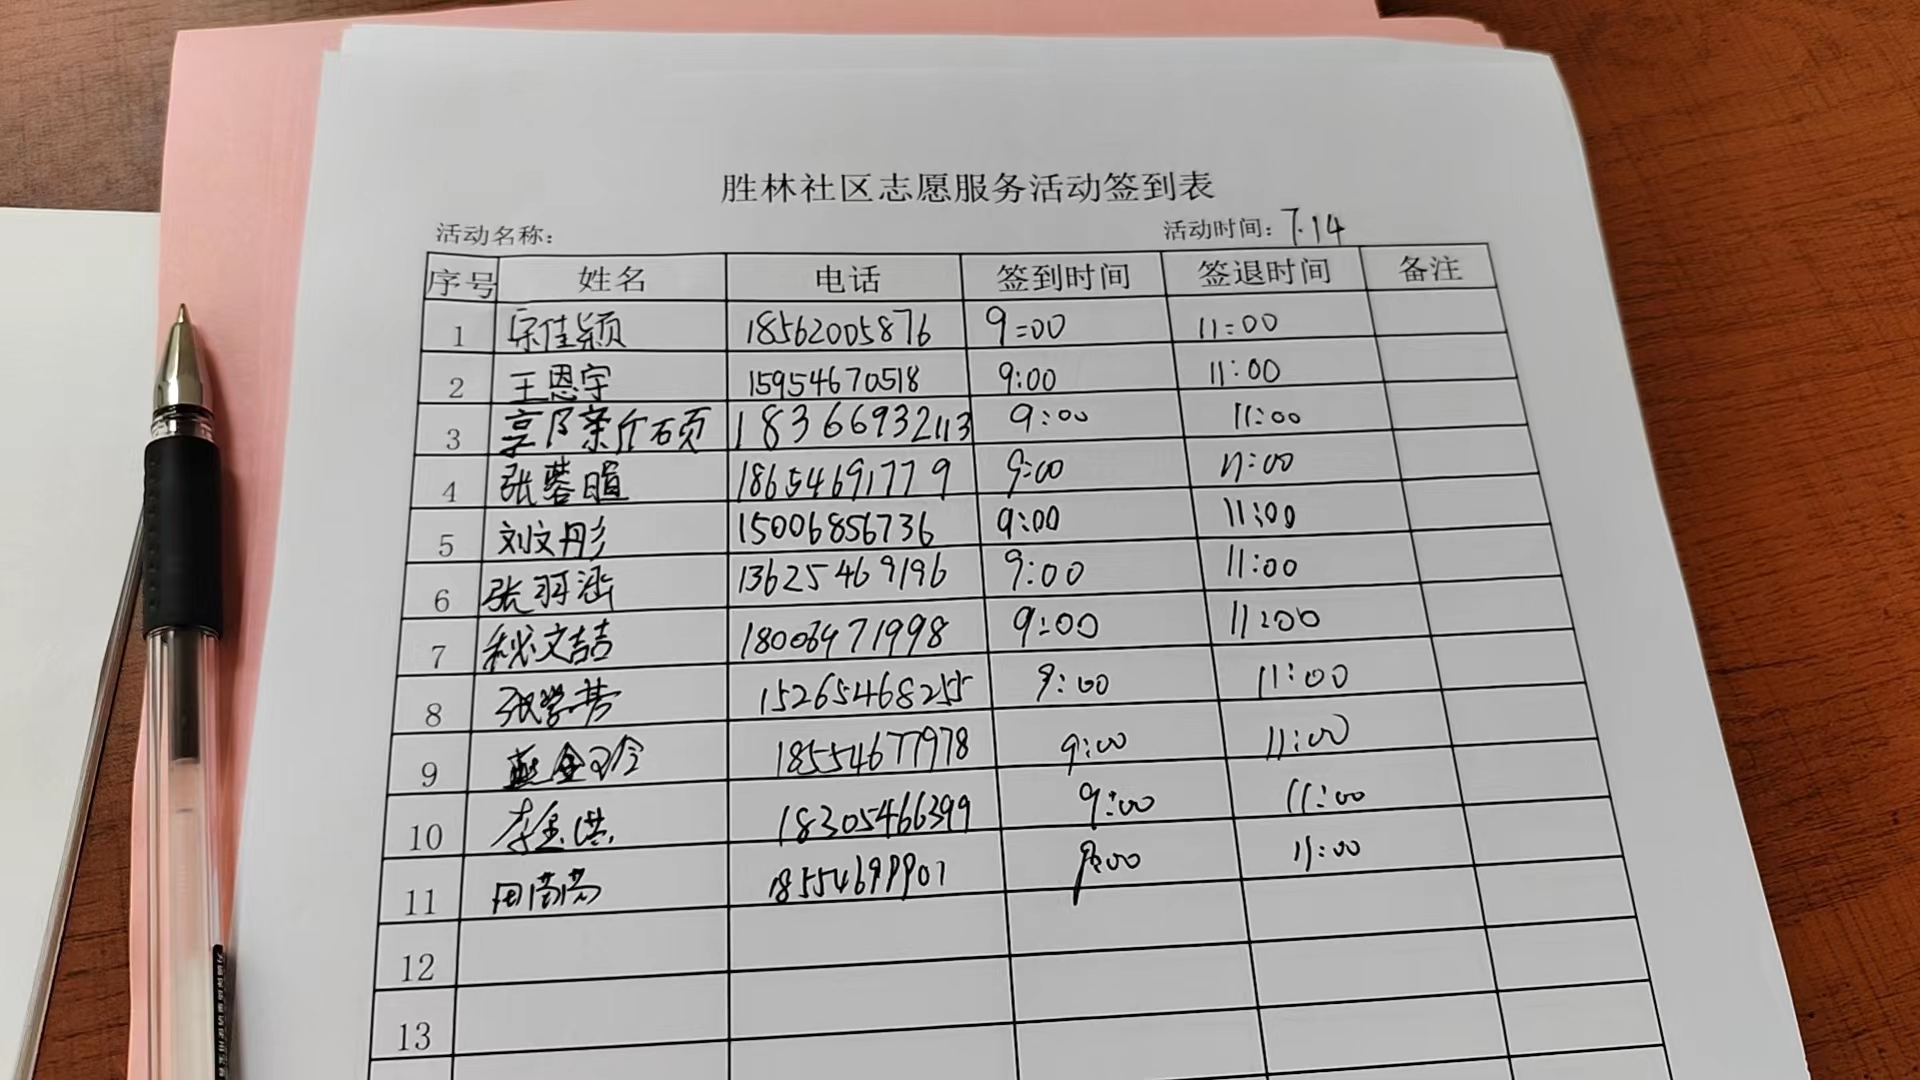 胜林社区志愿服务活动签到表
活动名称： 活动时间：7.14
序号 姓名 电话 签到时间 签退时间 备注
1 宋佳颖 18562005876 9:00 11:00
2 王恩宇 15954670518 9:00 11:00
3 18366932113 9:00 11:00
4 张蓉 18654691779 9:00 11:00
5 刘文彤 15006856736 9:00 11:00
6 张羽涵 13625469196 9:00 11:00
7 秘文喆 9:00 11:00
8 张学芳 15265468255 9:00 11:00
9 18554677978 9:00 11:00
10 李金洪 18305466399 9:00 11:00
11 田茜茜 9:00 11:00
12
13